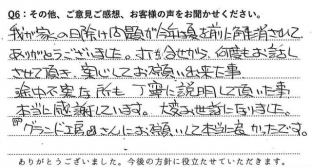 Q6：その他、ご意見ご感想、お客様の声をお聞かせください。
我が家の日除け問題が今年の夏を前に解消されて
ありがとうございました。打ち合せから、何度もお話し
させて頂き、安心してお願い出来た事
途中不安な所も丁寧に説明して頂いた事
本当に感謝しています。大変お世話になりました。
グランド工房さんにお願いして本当に良かったです。
ありがとうございました。今後の方針に役立たせていただきます。